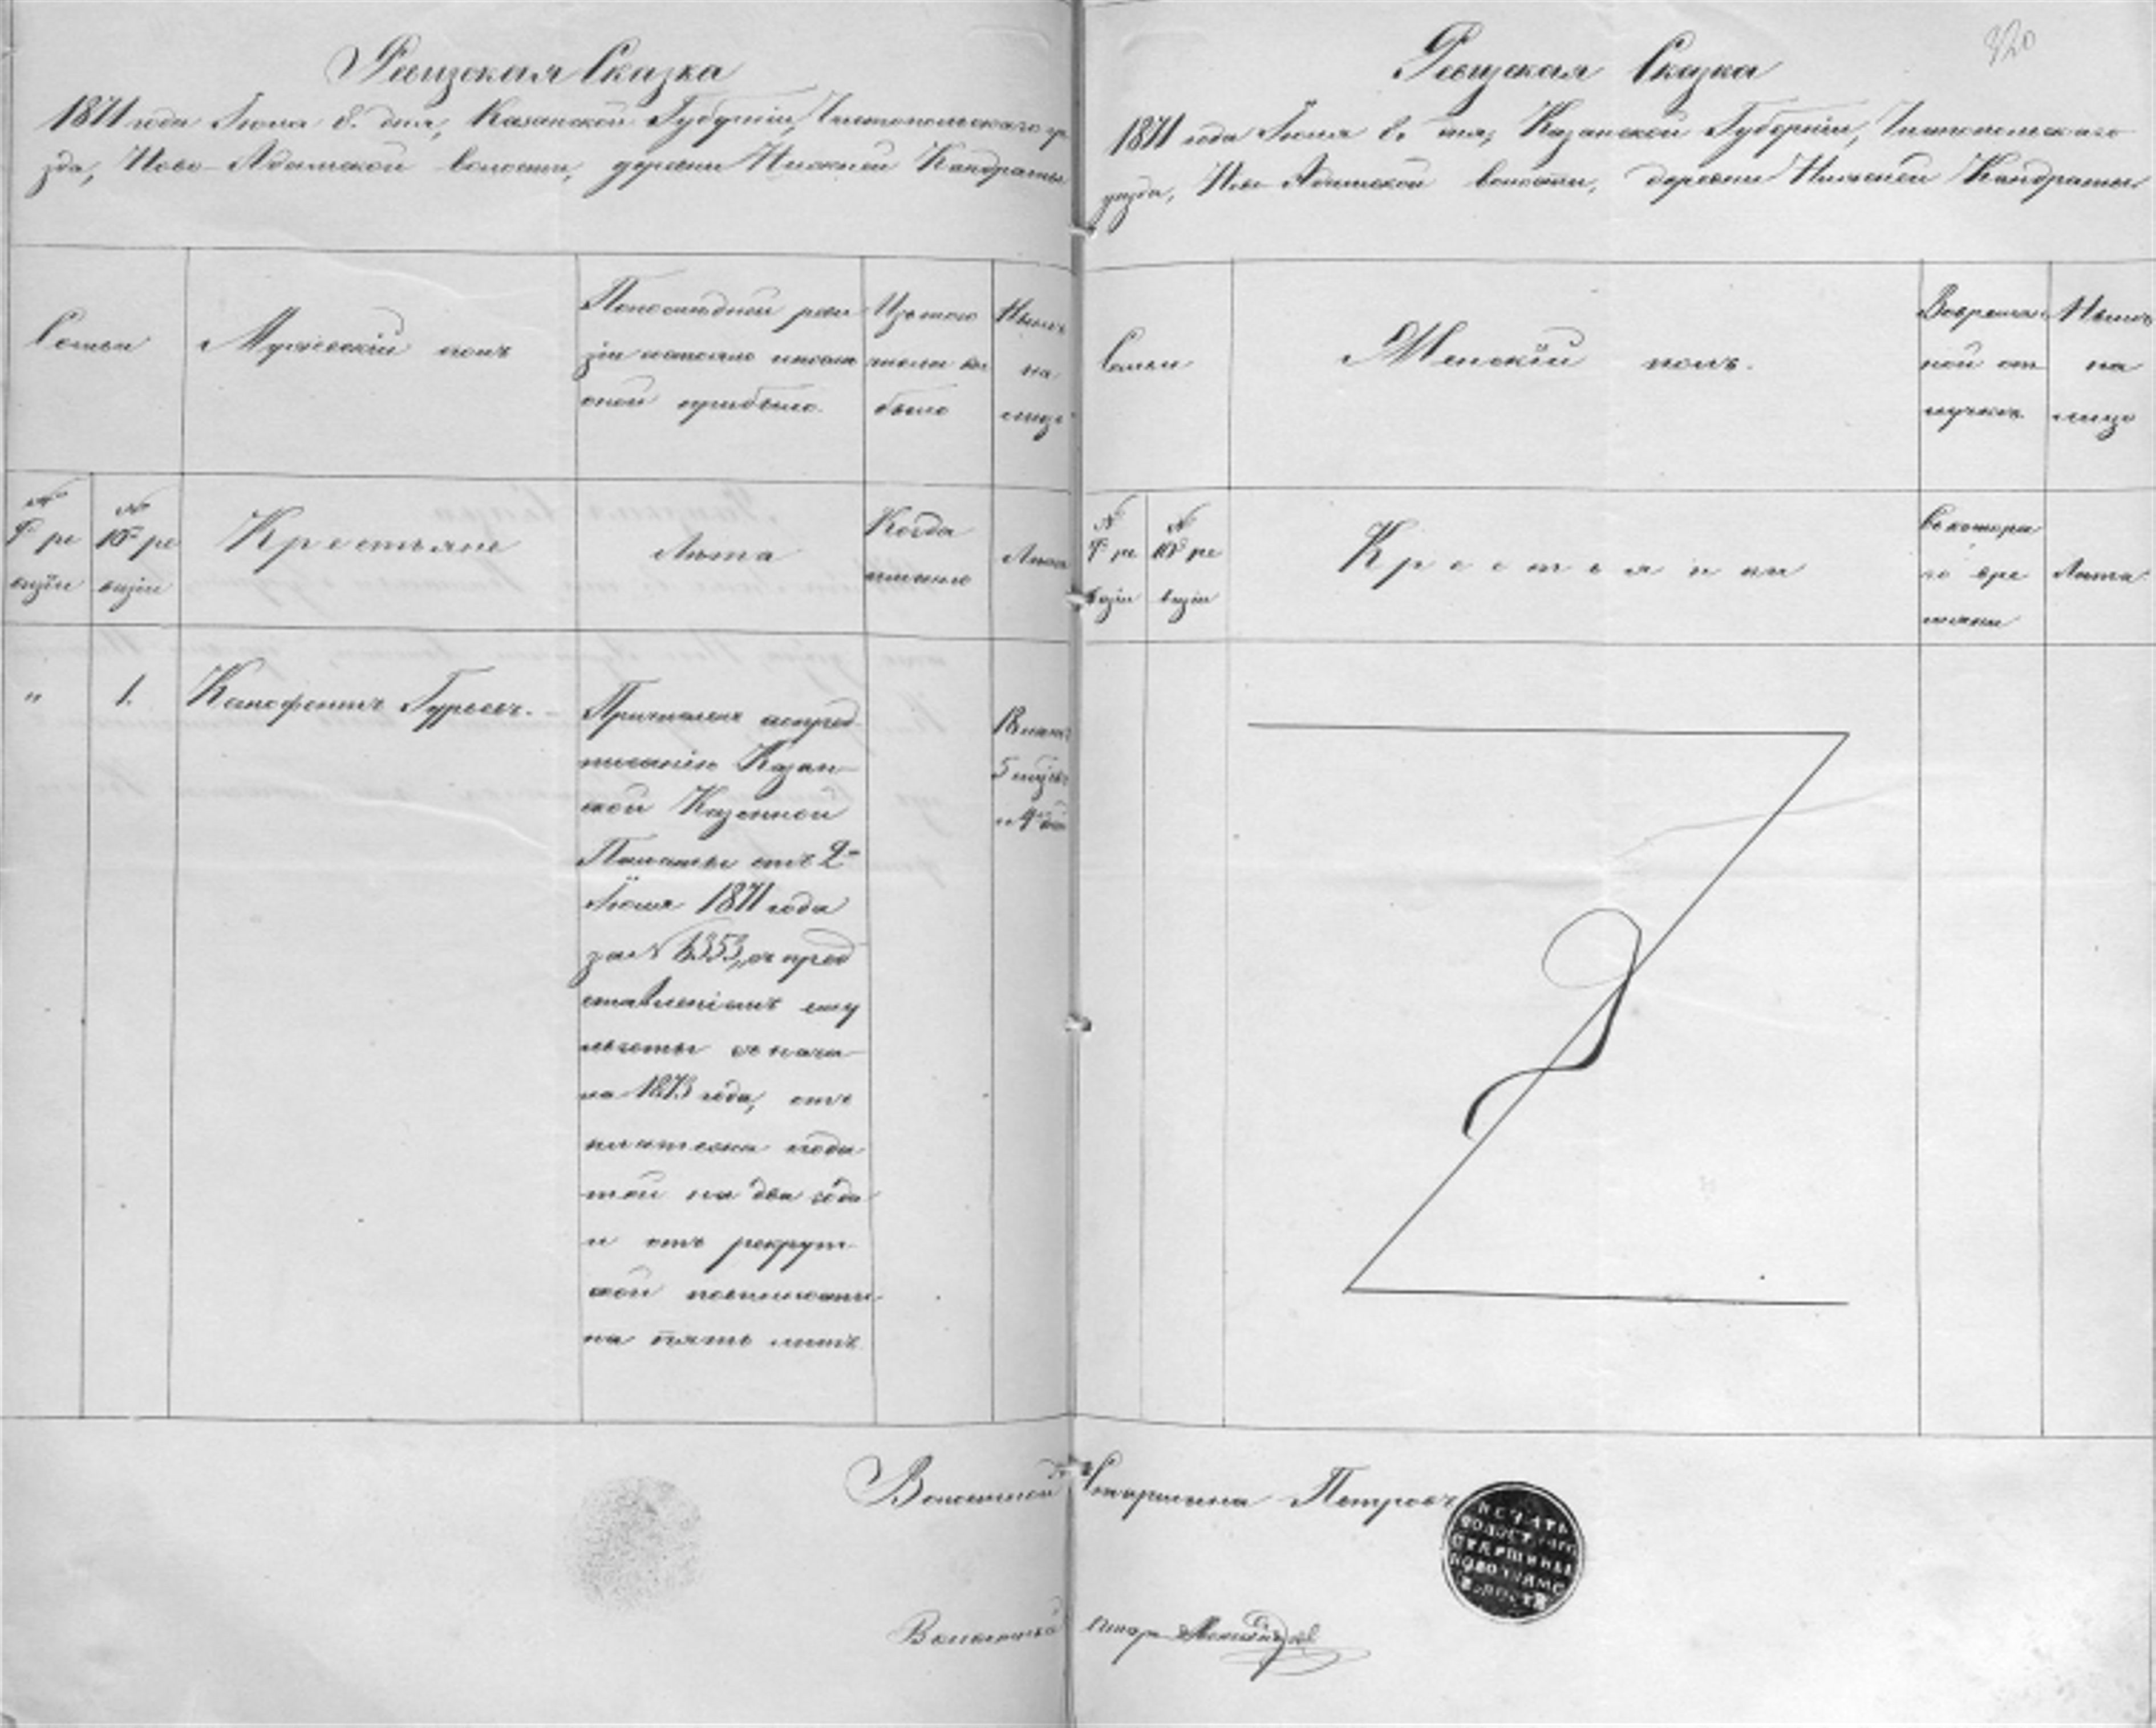 Ревизская Сказка
1871 года Июля 8. дня, Казанской Губерніи, Чистопольскаго уѣ
зда, Ново-Адамской волости, деревни Нижней Кондраты
Семьи
Мужескій полъ
По последней реви
зіи состояло и после
оной прибыло.
Изъ того
числа вы
было
Нынѣ
на
лицо
№
9й ре
визіи
№
10й ре
визіи
Крестьяне
Лѣта
Когда
именно
Лѣта
"
1.
Ксенофонтъ Гурьевъ.
Причисленъ по пред
писанію Казан
ской Казенной
Палаты отъ 2
Іюля 1871 года
за № 6353, съ пред
ставленіемъ ему
льготы съ нача
ла 1873 года, отъ
платежа пода
тей на два года
и отъ рекрут
ской повинности
на пять летъ
5 мѣсяц
320
Ревизская Сказка
1871 года Іюля 8. дня, Казанской Губерніи, Чистопольскаго
уѣзда, Ново-Адамской волости, деревни Нижней Кондраты
Семьи
Женскій полъ.
Во времен
ной от
лучкѣ
Нынѣ
на
лицо
№
9й ре
визіи
№
10й ре
визіи
Крестьянки
Съ котора
го вре
мени
Лѣта
Волостной Старшина Петровъ
ПЕЧАТЬ
ВОЛОСТНАГО
СТАРШИНЫ
НОВОАДАМС
ВОЛОСТИ
Волостной писарь